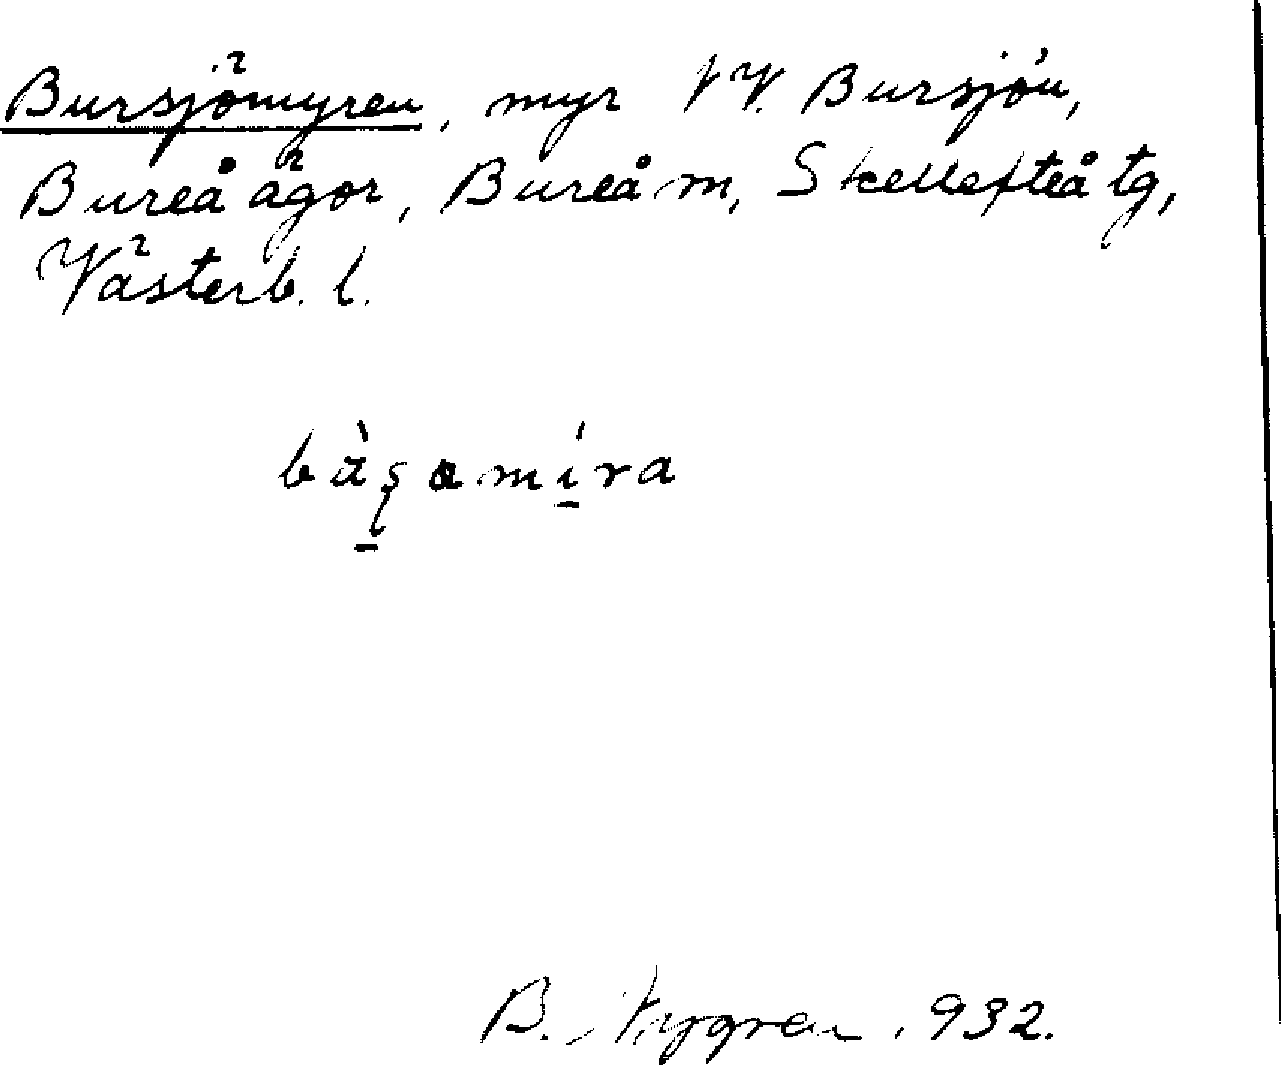 Bursjömyren, myr NV. Bursjön,
Bureå ägor, Bureå m, Skellefteå tg,
Västerb. l.
B. Nygren. 932.